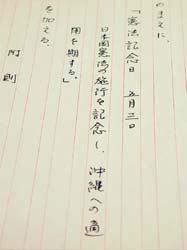 のまえに、
「憲法記念日 五月三日
日本国憲法の施行を記念し、沖縄への適
用を期する。」
を加える。
附則